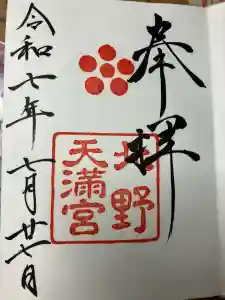 奉拝
北野
天満宮
令和七年 七月廿七日